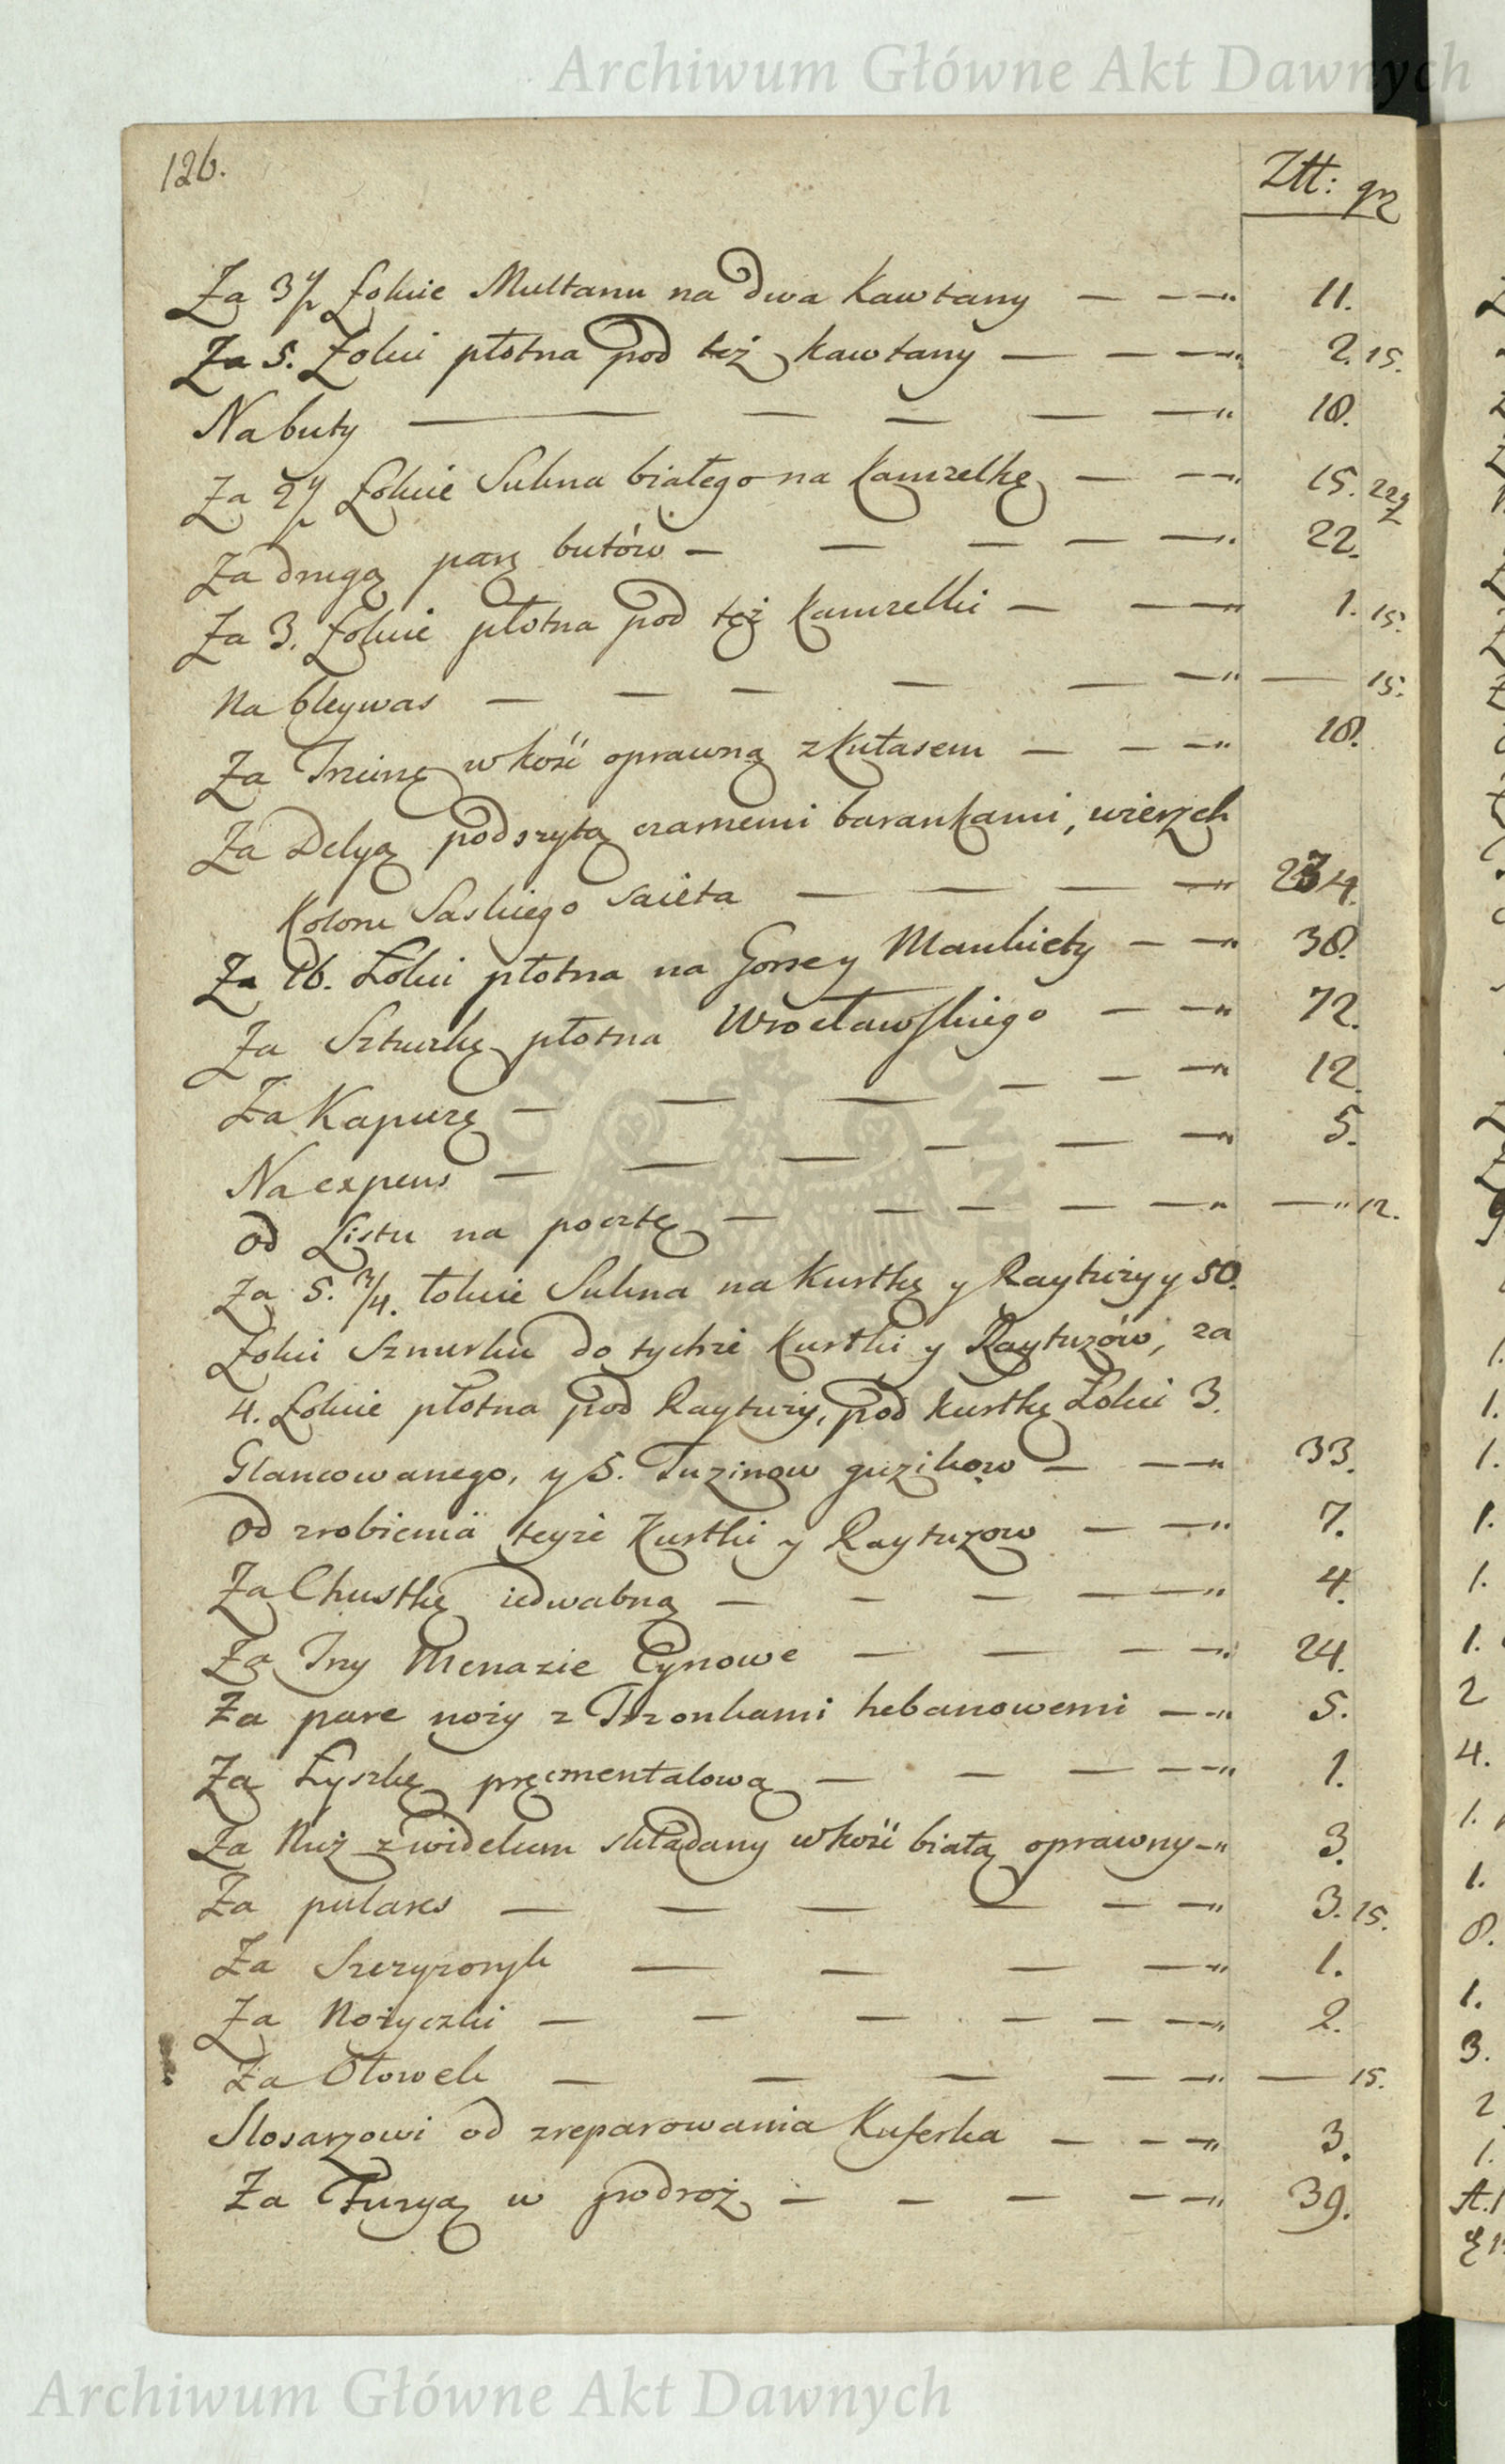 Archiwum Główne Akt Dawnych
126.
Ztt: gr
Za Łokcie Multanu na dwa Kawtany — — —„ 11.
Za 5. Łokci płotna pod też Kawtany — — —„ 2. 15.
Na buty — — — — —„ 18.
Za Łokcie Sukna białego na Kamzelkę — — —„ 15. 22
Za drugą parę butów — — — — —„ 22.
Za 3. Łokcie płotna pod też Kamzelki — — —„ 1. 15.
Na bleywas — — — — — —„ — 15.
Za Trzcinę w kość oprawną z Kutasem — — —„ 18.
Za Delyą podszytą czarnemi barankami, wierzch
Koloru Saskiego — — — —„ 4.
Za 16. Łokci płotna na Gorse y Mankiety — —„ 38.
Za Sztuczkę płotna Wrocławskiego — —„ 72.
Za Kapuzę — — — — — —„ 12.
Na expens — — — — — —„ 5.
od Listu na pocztę — — — — —„ —„ 12.
Za 5. 3/4. łokcie Sukna na Kurtkę y Raytuzy y 50.
Łokci Sznurku do tychże Kurtki y Raytuzów, za
4. Łokcie płotna pod Raytuzy, pod Kurtkę Łokci 3.
Glancowanego, y 5. Tuzinow guzikow — —„ 33.
od zrobienia teyże Kurtki y Raytuzow — —„ 7.
Za Chustkę iedwabną — — — — —„ 4.
Za Trzy Menazie Cynowe — — — —„ 24.
Za pare noży z Trzonkami hebanowemi — —„ 5.
Za Łyszkę pręcmentalową — — — —„ 1.
Za Nuż z widelcem składany w kość białą oprawny —„ 3.
Za pulares — — — — — —„ 3. 15.
Za Szczyzoryk — — — —„ 1.
Za Nożyczki — — — — — —„ 2.
Za Ołowek — — — — —„ — 15.
Slosarzowi od zreparowania Kuferka — — —„ 3.
Za w podroż — — — — —„ 39.
Archiwum Główne Akt Dawnych